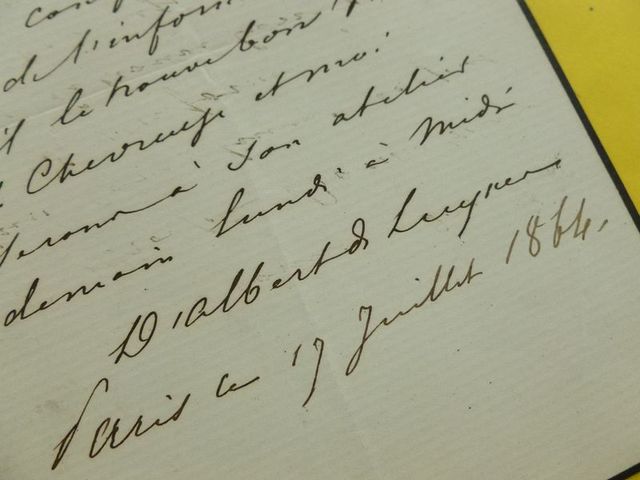 de l'inform
il le trouve bon
Chevreuse et moi
serons à son atelier
demain lundi à midi
D'albert de Luynes
Paris ce 17 Juillet 1864.